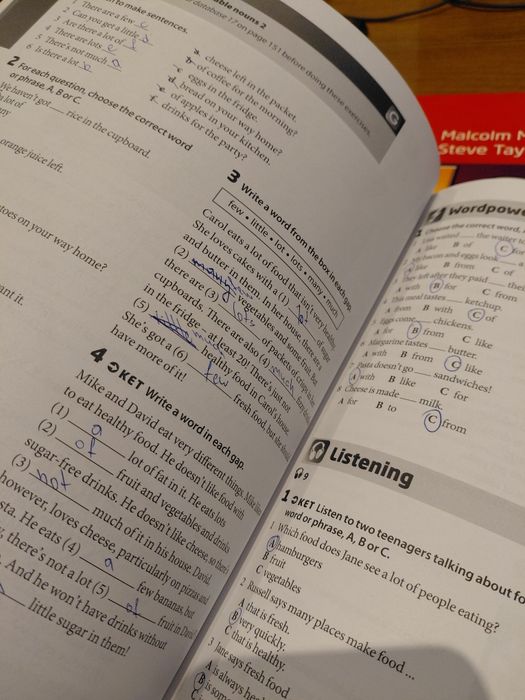 able nouns 2
database 17 on page 151 before doing these exercises.
to make sentences.
1 There are a few c
2 Can you get a little d
3 Are there a lot of f
4 There are lots e
5 There's not much a
6 Is there a lot b
a cheese left in the packet.
b of coffee for the morning?
c eggs in the fridge.
d bread on your way home?
e of apples in your kitchen.
f drinks for the party?
G
2 For each question, choose the correct word
or phrase, A, B or C.
We haven't got ___ rice in the cupboard.
a lot of
orange juice left.
toes on your way home?
ant it.
3 Write a word from the box in each gap.
few • little • lot • lots • many • much
Carol eats a lot of food that isn't very healthy.
She loves cakes with a (1)
and butter in them. In her house, there aren't
(2) many vegetables and some fruit, but
there are (3) lots of packets of crisps in
cupboards. There are also (4)
in the fridge – at least 20! There's just not
(5) healthy food in Carol's house.
She's got a (6) few fresh food, but she
have more of it!
4 KET Write a word in each gap.
Mike and David eat very different things. Mike likes
to eat healthy food. He doesn't like food with
(1) a lot of fat in it. He eats lots
(2) of fruit and vegetables and drinks
sugar-free drinks. He doesn't like cheese, so there's
(3) not much of it in his house. David,
however, loves cheese, particularly on pizzas and
sta. He eats (4) a few bananas, but
there's not a lot (5) of fruit in David
And he won't have drinks without
little sugar in them!
Malcolm M
Steve Tay
Wordpowe
Choose the correct word,
the waiter
B of C for
bacon and eggs look
A like B from C of
They left after they paid the
A with B for C from
4 This meat tastes ketchup.
A from B with C of
5 Eggs come chickens.
A for B from C like
6 Margarine tastes butter.
A with B from C like
7 Pasta doesn't go sandwiches!
A with B like C for
8 Cheese is made milk.
A for B to C from
Listening
9
1 KET Listen to two teenagers talking about fo
word or phrase, A, B or C.
1 Which food does Jane see a lot of people eating?
A hamburgers
B fruit
C vegetables
2 Russell says many places make food ...
A that is fresh.
B very quickly.
C that is healthy.
3 Jane says fresh food
A is always
B is som